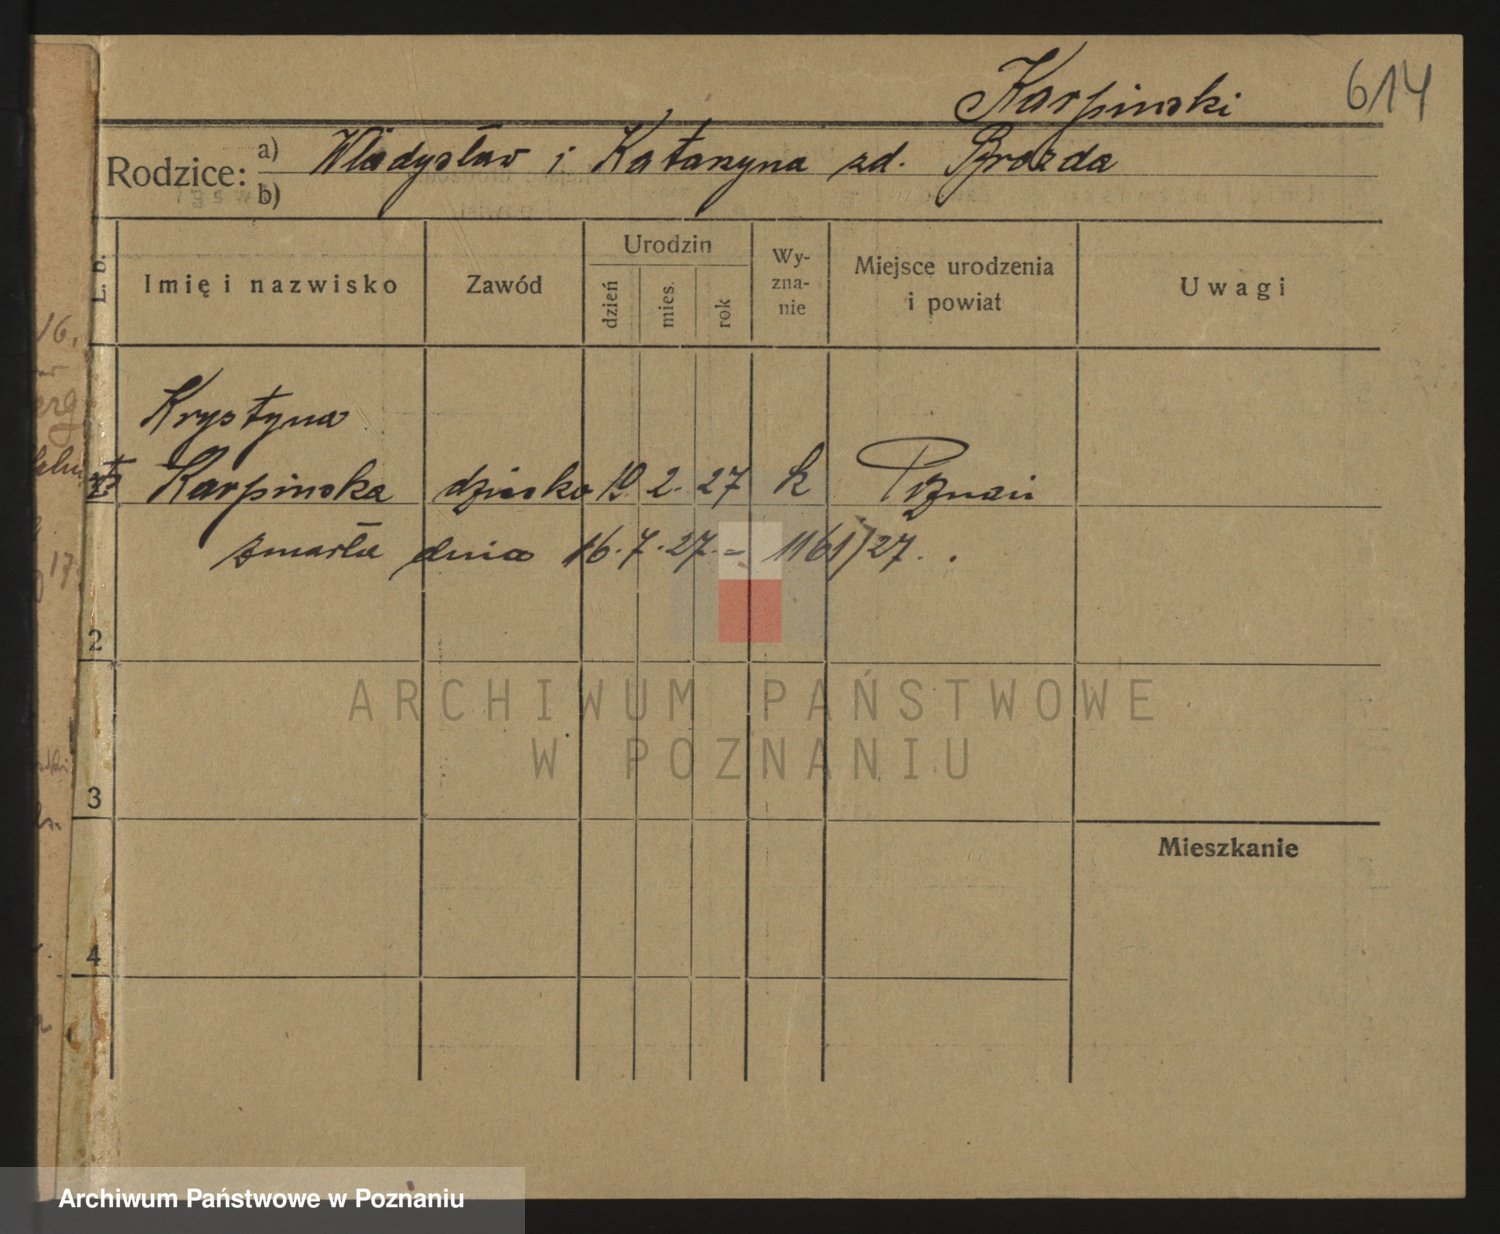 Karpinski 614
Rodzice: a) Władysław i Katarzyna zd. Brozda
b)
L. b. Imię i nazwisko Zawód Urodzin dzień mies. rok Wy-zna-nie Miejsce urodzenia i powiat Uwagi
Krystyna
Karpinska dziecko 19. 2. 27 k Poznań
zmarła dnia 16.7.27.- 1161/27.
2
3
Mieszkanie
4
ARCHIWUM PAŃSTWOWE
W POZNANIU
Archiwum Państwowe w Poznaniu